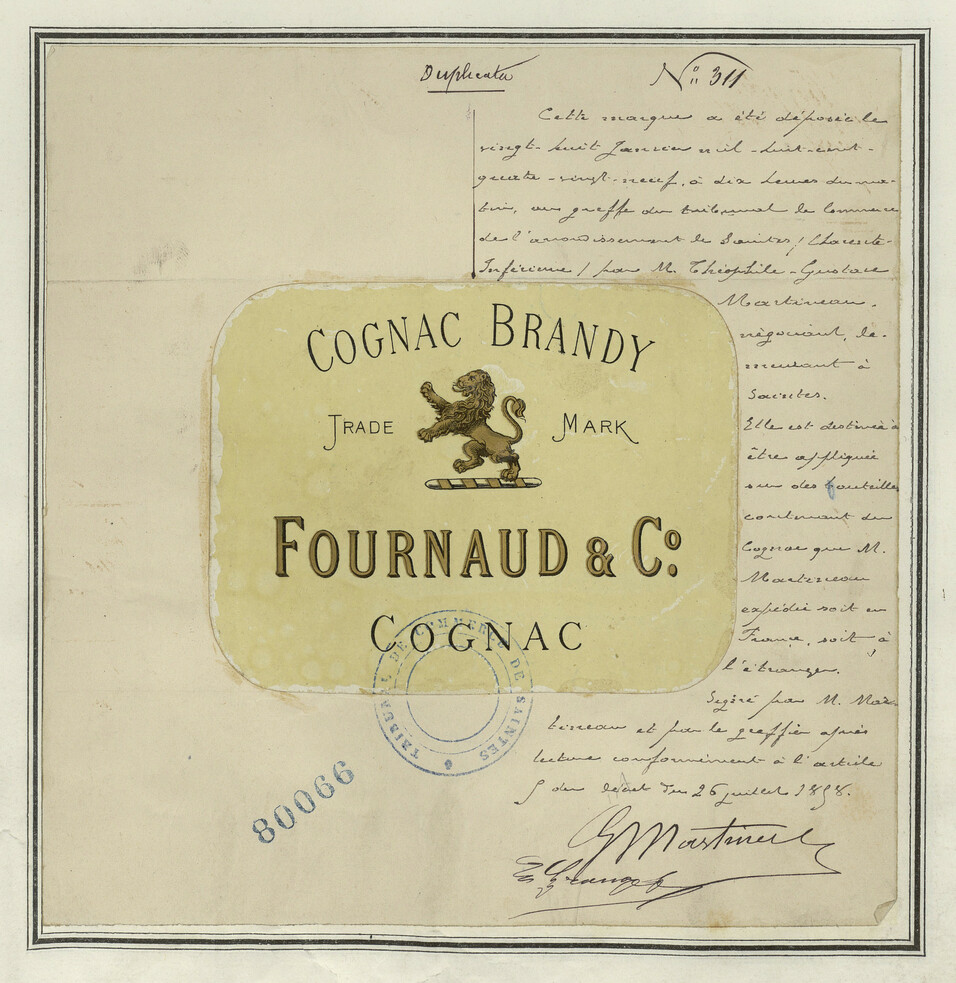 Duplicata
N° 311
Cette marque a été déposée le
vingt-huit Janvier mil-huit-cent-
quatre-vingt-neuf, à dix heures du ma-
tin, au greffe du tribunal de Commerce
de l'arrondissement de Saintes / Charente-
Inférieure / par M. Théophile-Gustave
Martineau,
négociant, de-
meurant à
Saintes.
Elle est destinée à
être appliquée
sur des bouteilles
contenant du
Cognac que M.
Martineau
expédie soit en
France, soit à
l'étranger.
Signé par M. Mar-
tineau et par le greffier après
lecture conformément à l'article
5 du décret du 26 juillet 1858.
COGNAC BRANDY
TRADE MARK
FOURNAUD & Co.
COGNAC
TRIBUNAL DE COMMERCE DE SAINTES
80066
G Martineau